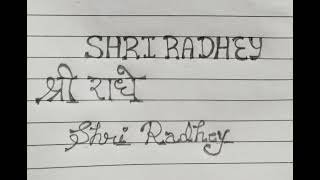 SHRI RADHEY
श्री राधे
Shri Radhey